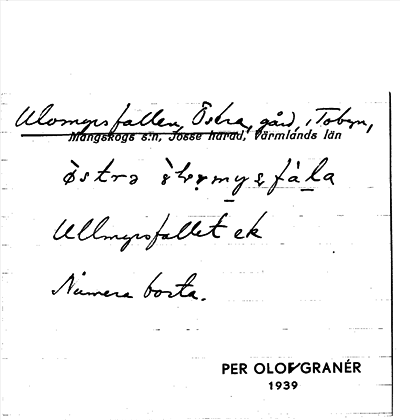 Ulomyrsfallen, Östra, gård, i Tobyn,
Mangskogs s:n, Jösse härad, Värmlands län
östra
Ullmyrsfallet ek
Numera borta.
PER OLOF GRANÉR
1939